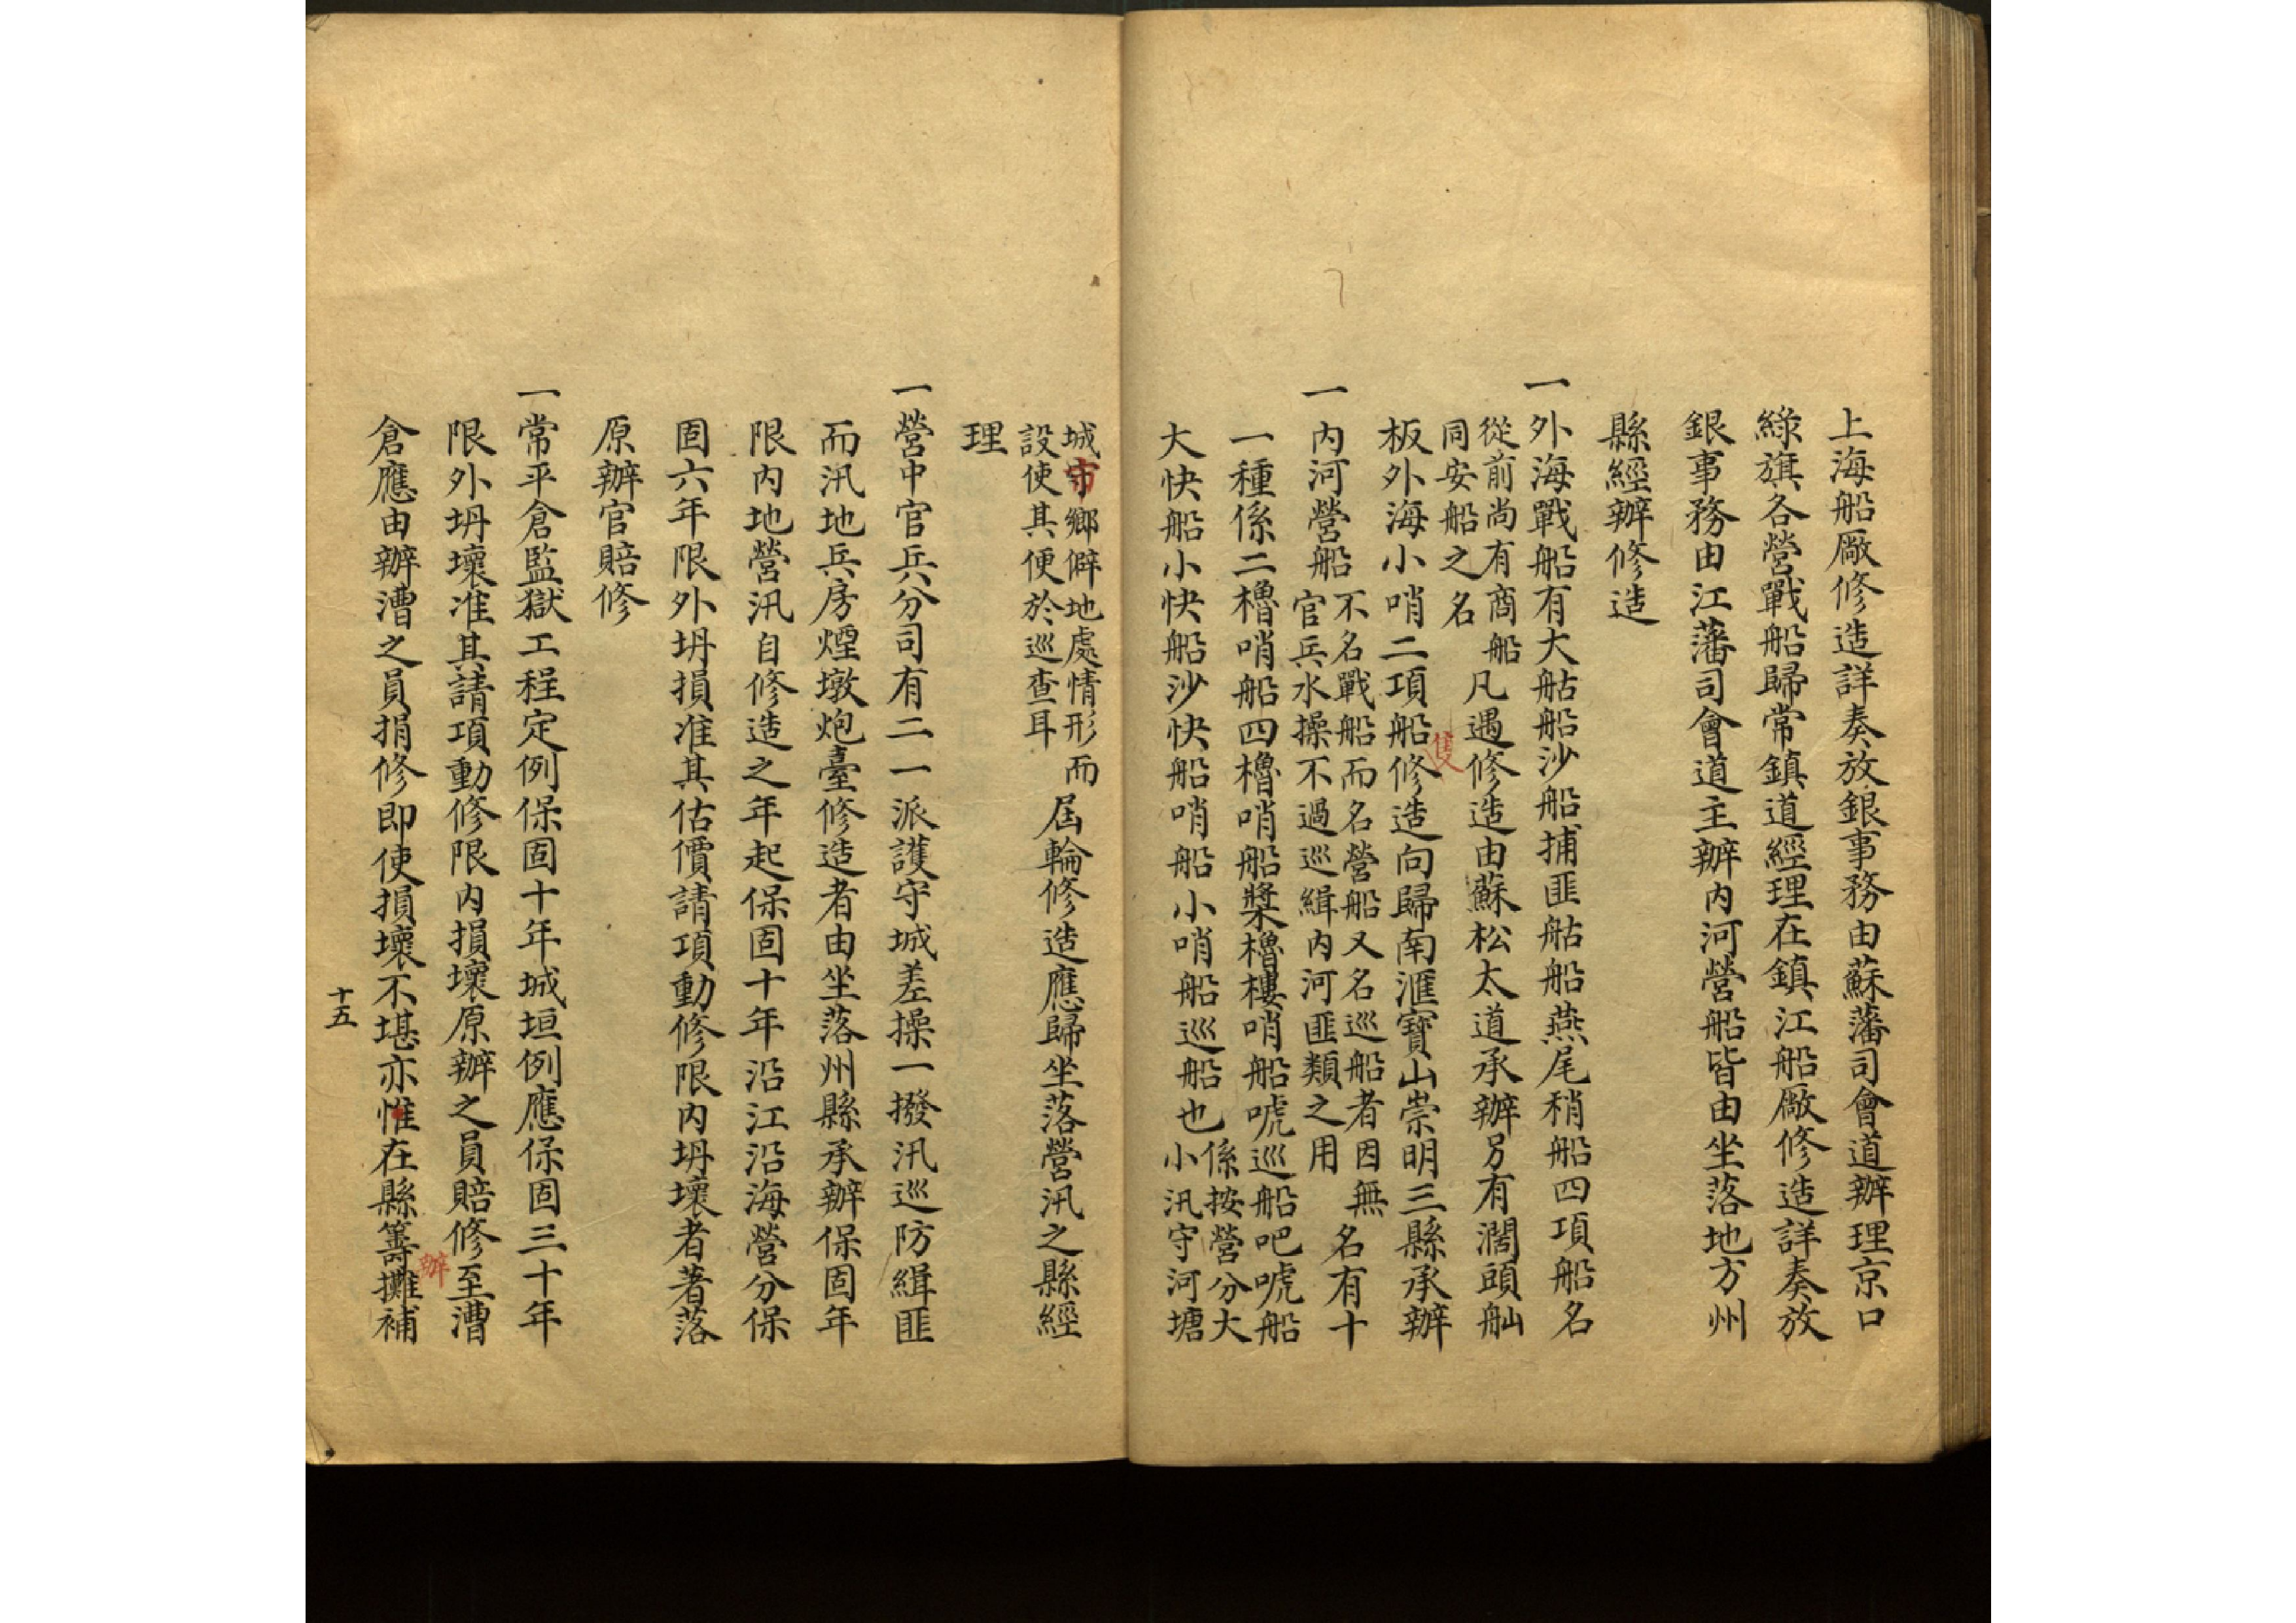 上海船廠修造詳奏放銀事務由蘇藩司會道辦理京口
綠旗各營戰船歸常鎮道經理在鎮江船廠修造詳奏放
銀事務由江藩司會道主辦内河營船皆由坐落地方州
縣經辦修造
一外海戰船有大䑩船沙船捕匪䑩船燕尾稍船四項船名
從前尚有商船
同安船之名
凡遇修造由蘇松太道承辦另有濶頭舢
板外海小哨二項船隻修造向歸南滙寶山崇明三縣承辦
一内河營船
不名戰船而名營船又名巡船者因無
官兵水操不過巡緝内河匪類之用
名有十
一種係二櫓哨船四櫓哨船槳櫓樓哨船唬巡船吧唬船
大快船小快船沙快船哨船小哨船巡船也
係按營分大
小汛守河塘
城市鄉僻地處情形而
設使其便於巡查耳
屆輪修造應歸坐落營汛之縣經
理
一營中官兵分司有二一派護守城差操一撥汛巡防緝匪
而汛地兵房煙墩炮臺修造者由坐落州縣承辦保固年
限内地營汛自修造之年起保固十年沿江沿海營分保
固六年限外坍損准其估價請項動修限内坍壞者著落
原辦官賠修
一常平倉監獄工程定例保固十年城垣例應保固三十年
限外坍壞准其請項動修限内損壞原辦之員賠修至漕
倉應由辦漕之員捐修即使損壞不堪亦惟在縣籌辦攤補
十五